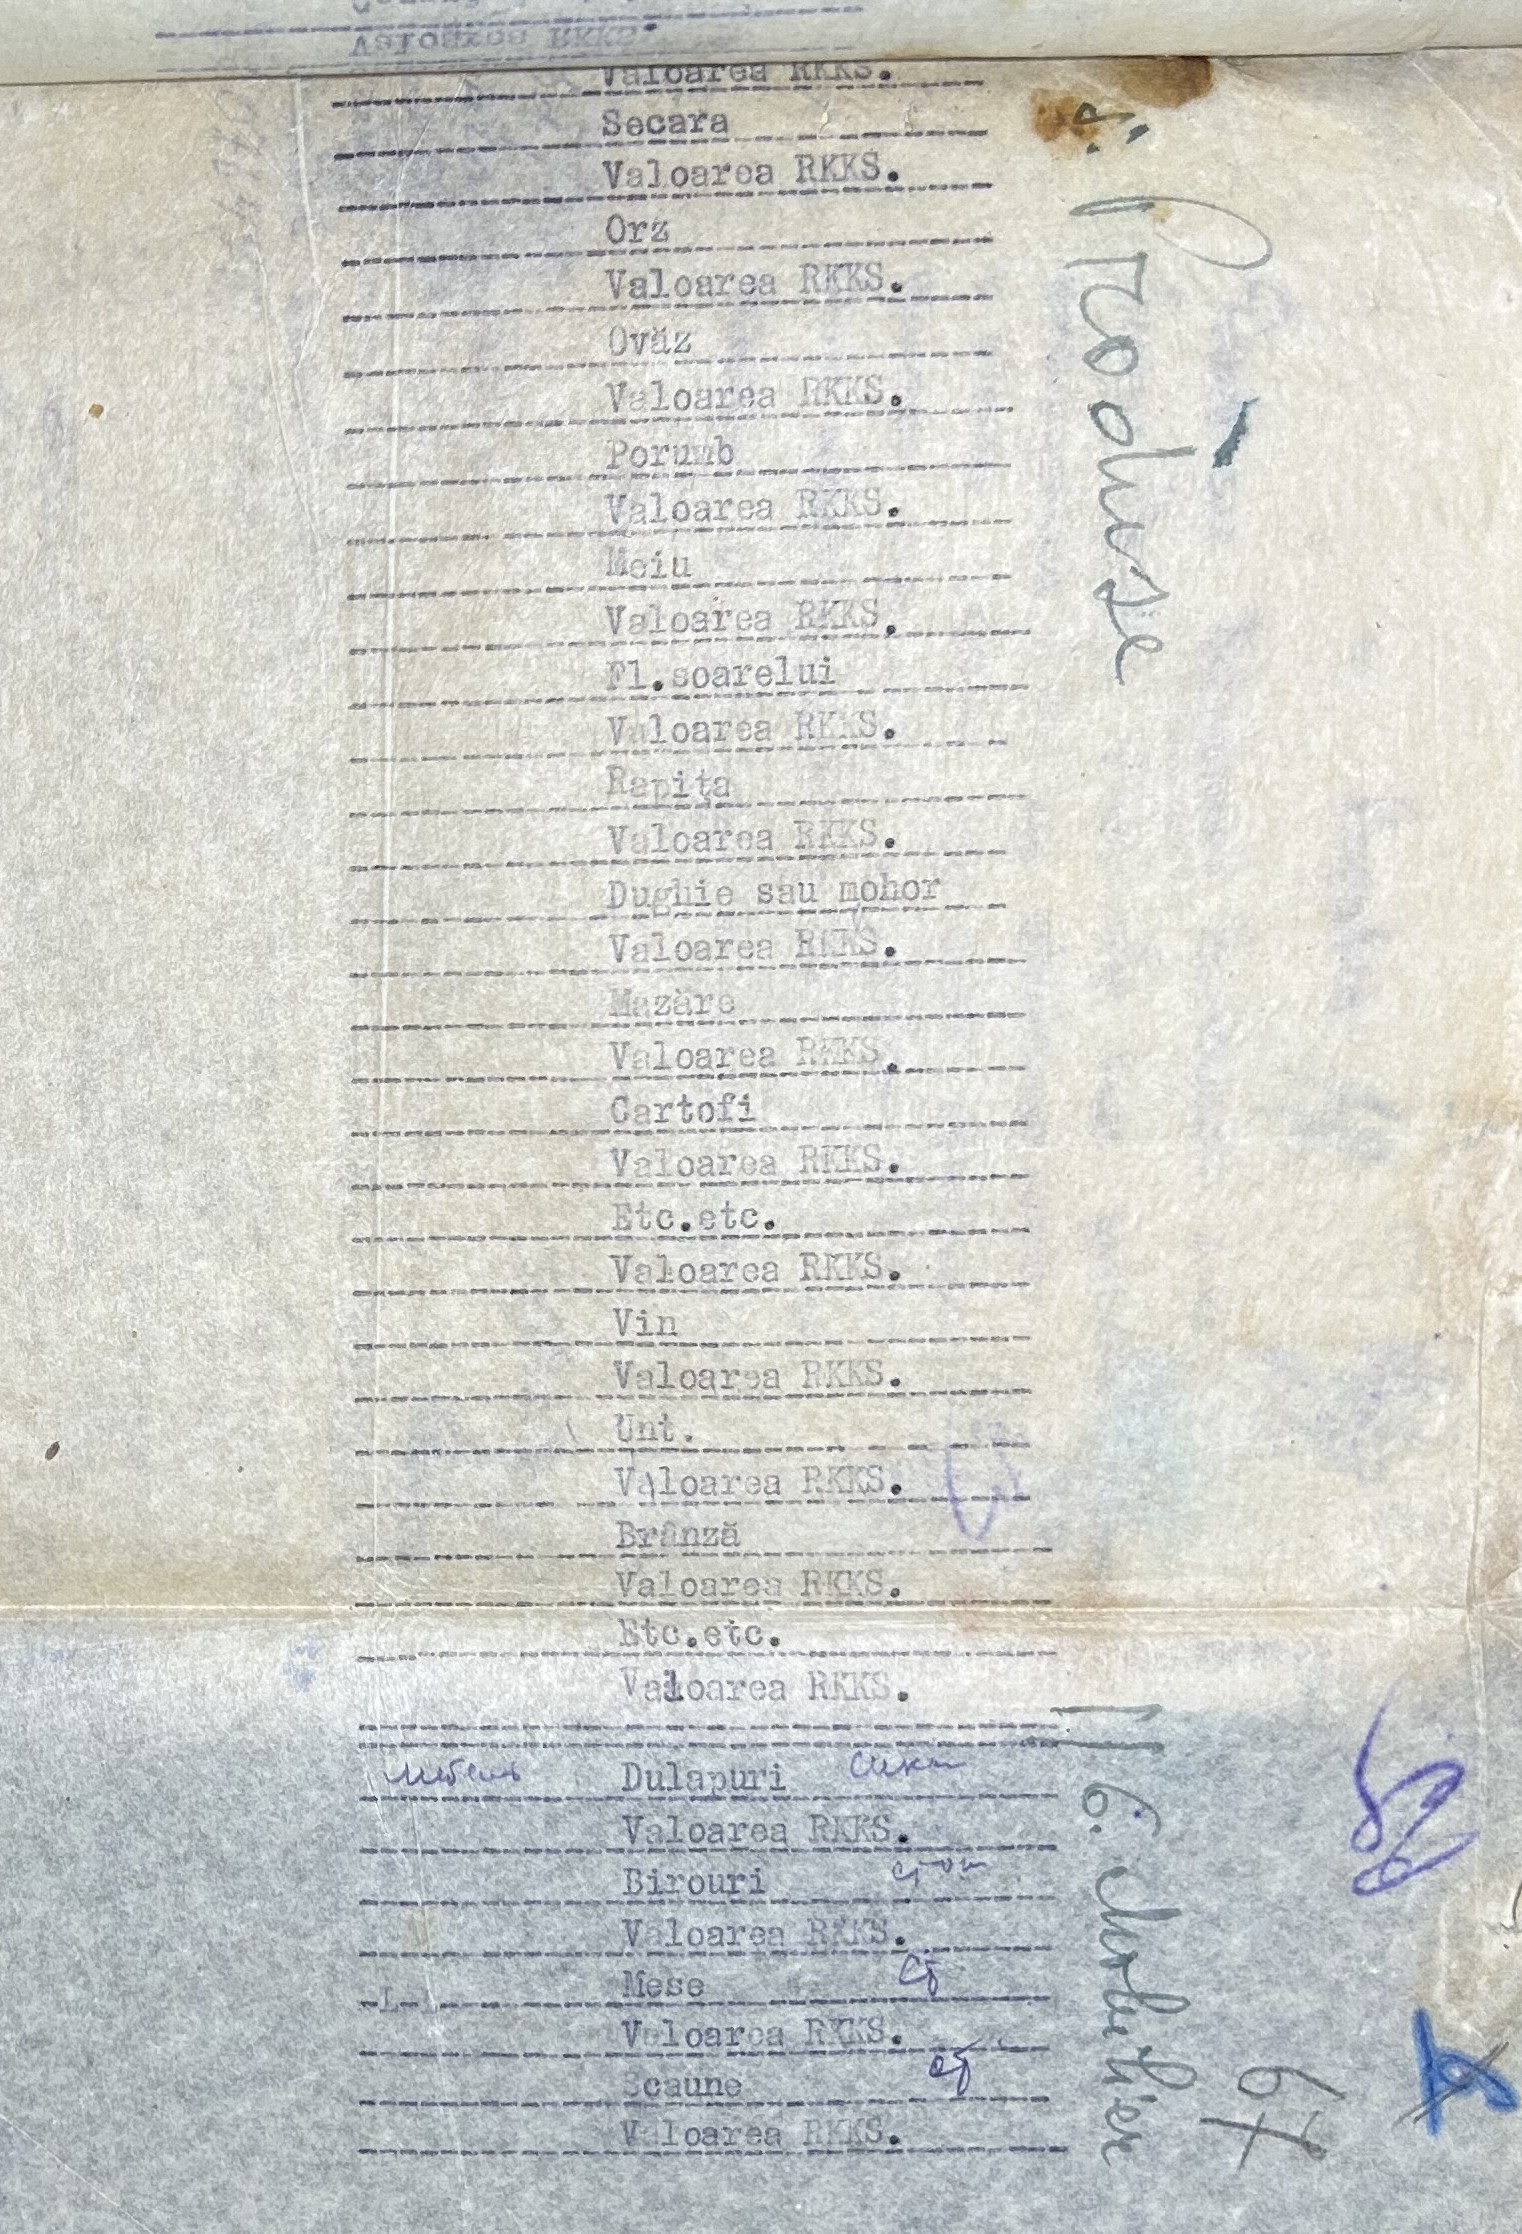 Valoarea RKKS.
Valoarea RKKS.
Secara
Valoarea RKKS.
Orz
Valoarea RKKS.
Ovăz
Valoarea RKKS.
Porumb
Valoarea RKKS.
Meiu
Valoarea RKKS.
Fl.soarelui
Valoarea RKKS.
Rapița
Valoarea RKKS.
Dughie sau mohor
Valoarea RKKS.
Mazăre
Valoarea RKKS.
Cartofi
Valoarea RKKS.
Etc.etc.
Valoarea RKKS.
Vin
Valoarea RKKS.
Unt.
Valoarea RKKS.
Brânză
Valoarea RKKS.
Etc.etc.
Valoarea RKKS.
Dulapuri
Valoarea RKKS.
Birouri
Valoarea RKKS.
Mese
Valoarea RKKS.
Scaune
Valoarea RKKS.
Produse
6. Mobilier